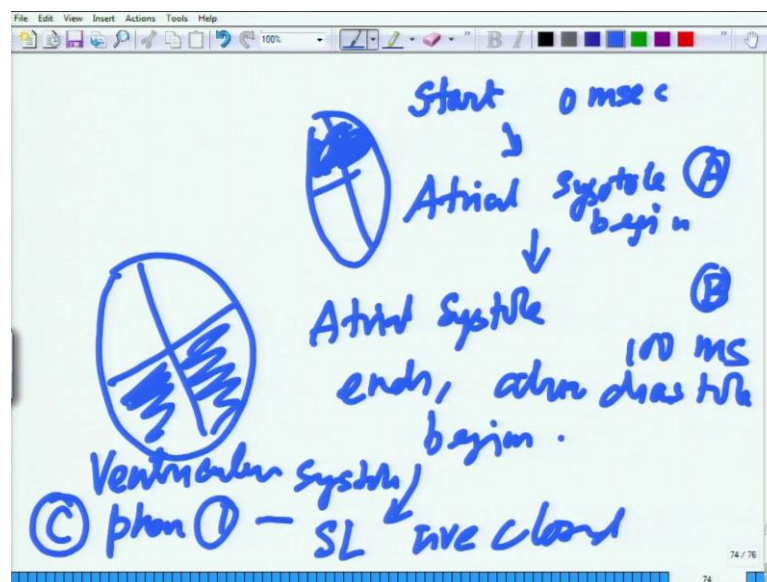 File Edit View Insert Actions Tools Help
100%
B I
Start 0 msec
Atrial systole A
begin
Atrial Systole B
100 ms
ends, diastole
begin.
Ventricular systole
C phase 1 - SL closed
74 / 76
74